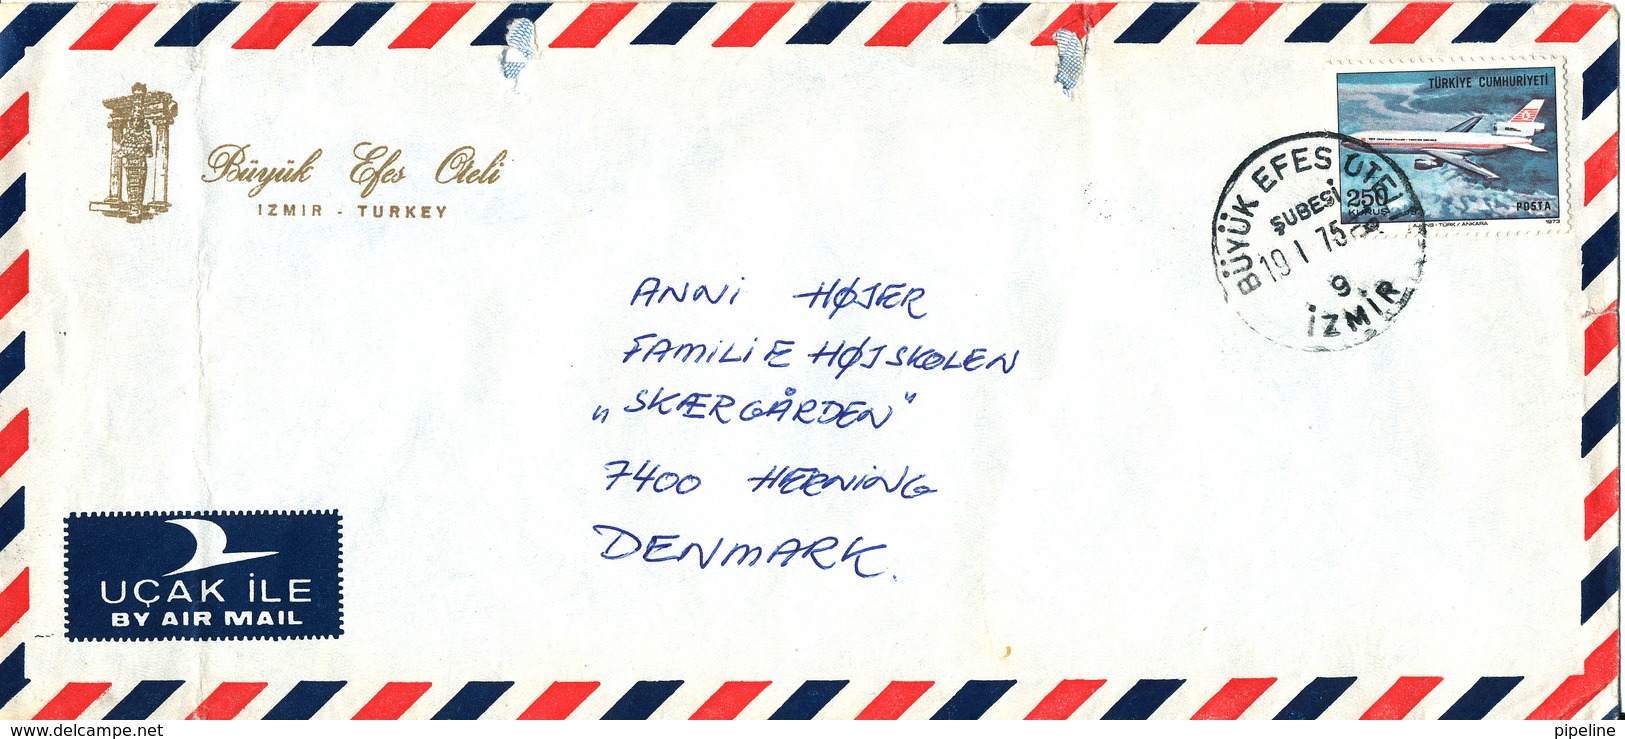 Büyük Efes Oteli
IZMIR - TURKEY
TÜRKİYE CUMHURİYETİ
250
KURUŞ
POSTA
AJANS-TÜRK / ANKARA
1973
BÜYÜK EFES OTELİ
ŞUBESİ
19 I 75
9
İZMİR
ANNI HØJER
FAMILIE HØJSKOLEN
„SKÆRGÅRDEN"
7400 HERNING
DENMARK.
UÇAK İLE
BY AIR MAIL
www.delcampe.net
pipeline